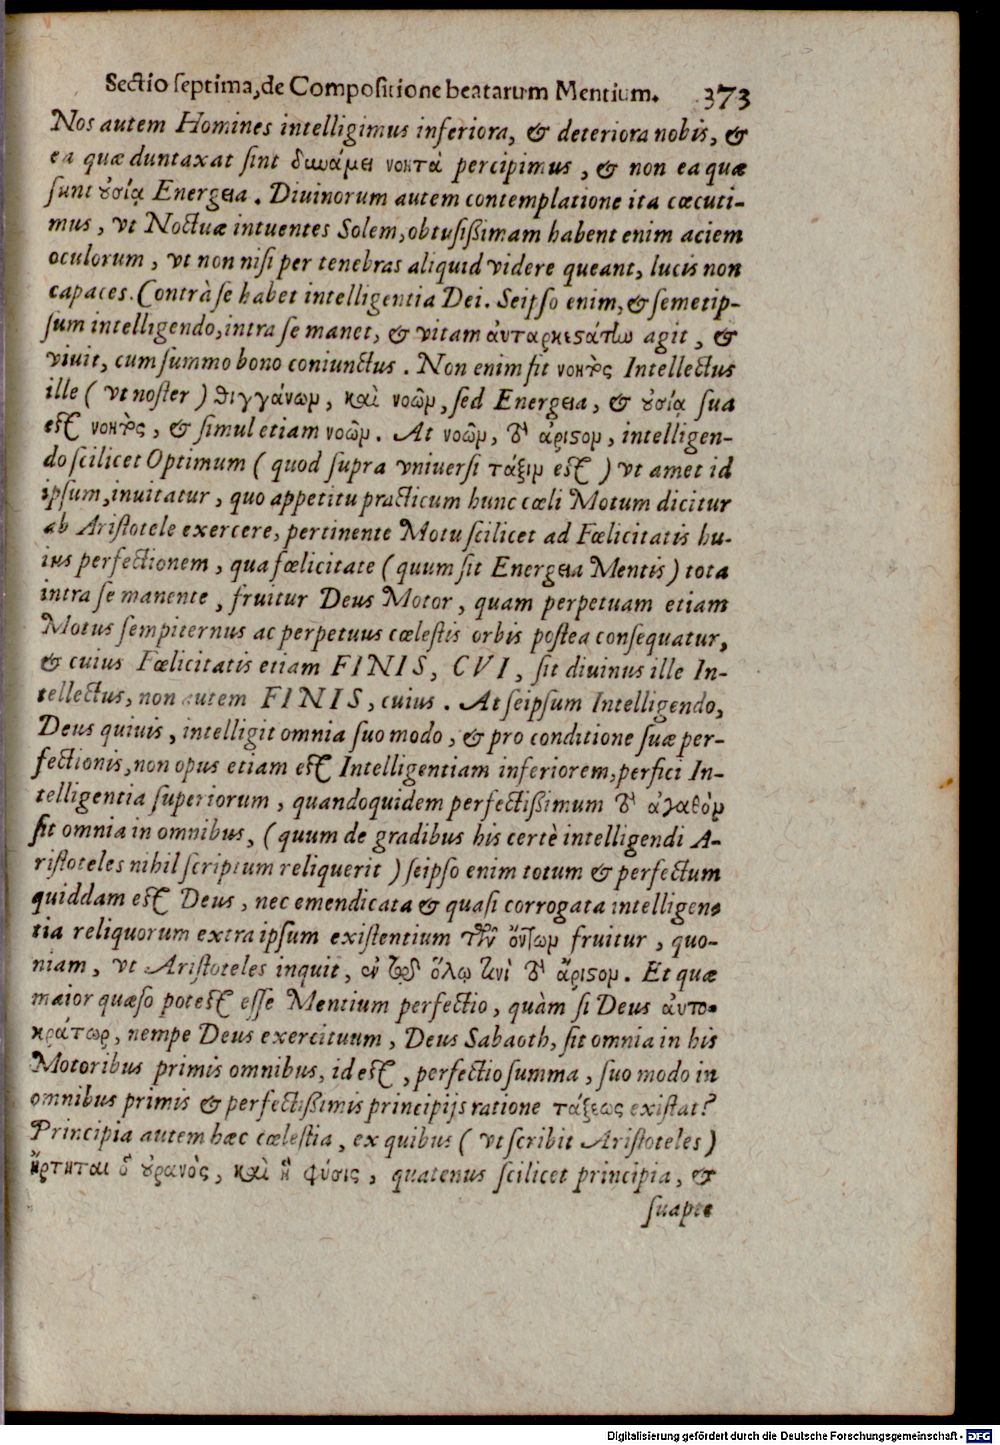 Sectio septima, de Compositione beatarum Mentium. 373
Nos autem Homines intelligimus inferiora, & deteriora nobis, &
ea quæ duntaxat sint δυνάμει νοητὰ percipimus, & non ea quæ
sunt οὐσίᾳ Energeia. Diuinorum autem contemplatione ita cœcuti-
mus, vt Noctuæ intuentes Solem, obtusißimam habent enim aciem
oculorum, vt non nisi per tenebras aliquid videre queant, lucis non
capaces. Contrà se habet intelligentia Dei. Seipso enim, & semetip-
sum intelligendo, intra se manet, & vitam ἀυταρκεϛάτω agit, &
viuit, cum summo bono coniunctus. Non enim fit νοητὸς Intellectus
ille (vt noster) θιγγάνωμ, καὶ νοῶμ, sed Energeia, & οὐσίᾳ sua
est νοητὸς, & simul etiam νοῶμ. At νοῶμ, τὸ ἀριϛομ, intelligen-
do scilicet Optimum (quod supra vniuersi τάξιμ est) vt amet id
ipsum, inuitatur, quo appetitu practicum hunc cœli Motum dicitur
ab Aristotele exercere, pertinente Motu scilicet ad Fœlicitatis hu-
ius perfectionem, qua fœlicitate (quum sit Energeia Mentis) tota
intra se manente, fruitur Deus Motor, quam perpetuam etiam
Motus sempiternus ac perpetuus cœlestis orbis postea consequatur,
& cuius Fœlicitatis etiam FINIS, CVI, sit diuinus ille In-
tellectus, non autem FINIS, cuius. At seipsum Intelligendo,
Deus quiuis, intelligit omnia suo modo, & pro conditione suæ per-
fectionis, non opus etiam est Intelligentiam inferiorem, perfici In-
telligentia superiorum, quandoquidem perfectißimum τὸ ἀγαθὸμ
sit omnia in omnibus, (quum de gradibus his certè intelligendi A-
ristoteles nihil scriptum reliquerit) seipso enim totum & perfectum
quiddam est Deus, nec emendicata & quasi corrogata intelligen-
tia reliquorum extra ipsum existentium τῶν ὄντωμ fruitur, quo-
niam, vt Aristoteles inquit, ἐν τῷ ὅλῳ τινὶ τὸ ἄριϛομ. Et quæ
maior quæso potest esse Mentium perfectio, quàm si Deus ἀυτο-
κράτωρ, nempe Deus exercituum, Deus Sabaoth, sit omnia in his
Motoribus primis omnibus, id est, perfectio summa, suo modo in
omnibus primis & perfectißimis principijs ratione τάξεως existat?
Principia autem hæc cœlestia, ex quibus (vt scribit Aristoteles)
ἤρτηται ὁ οὐρανὸς, καὶ ἡ φύσις, quatenus scilicet principia, &
suapte
Digitalisierung gefördert durch die Deutsche Forschungsgemeinschaft - DFG